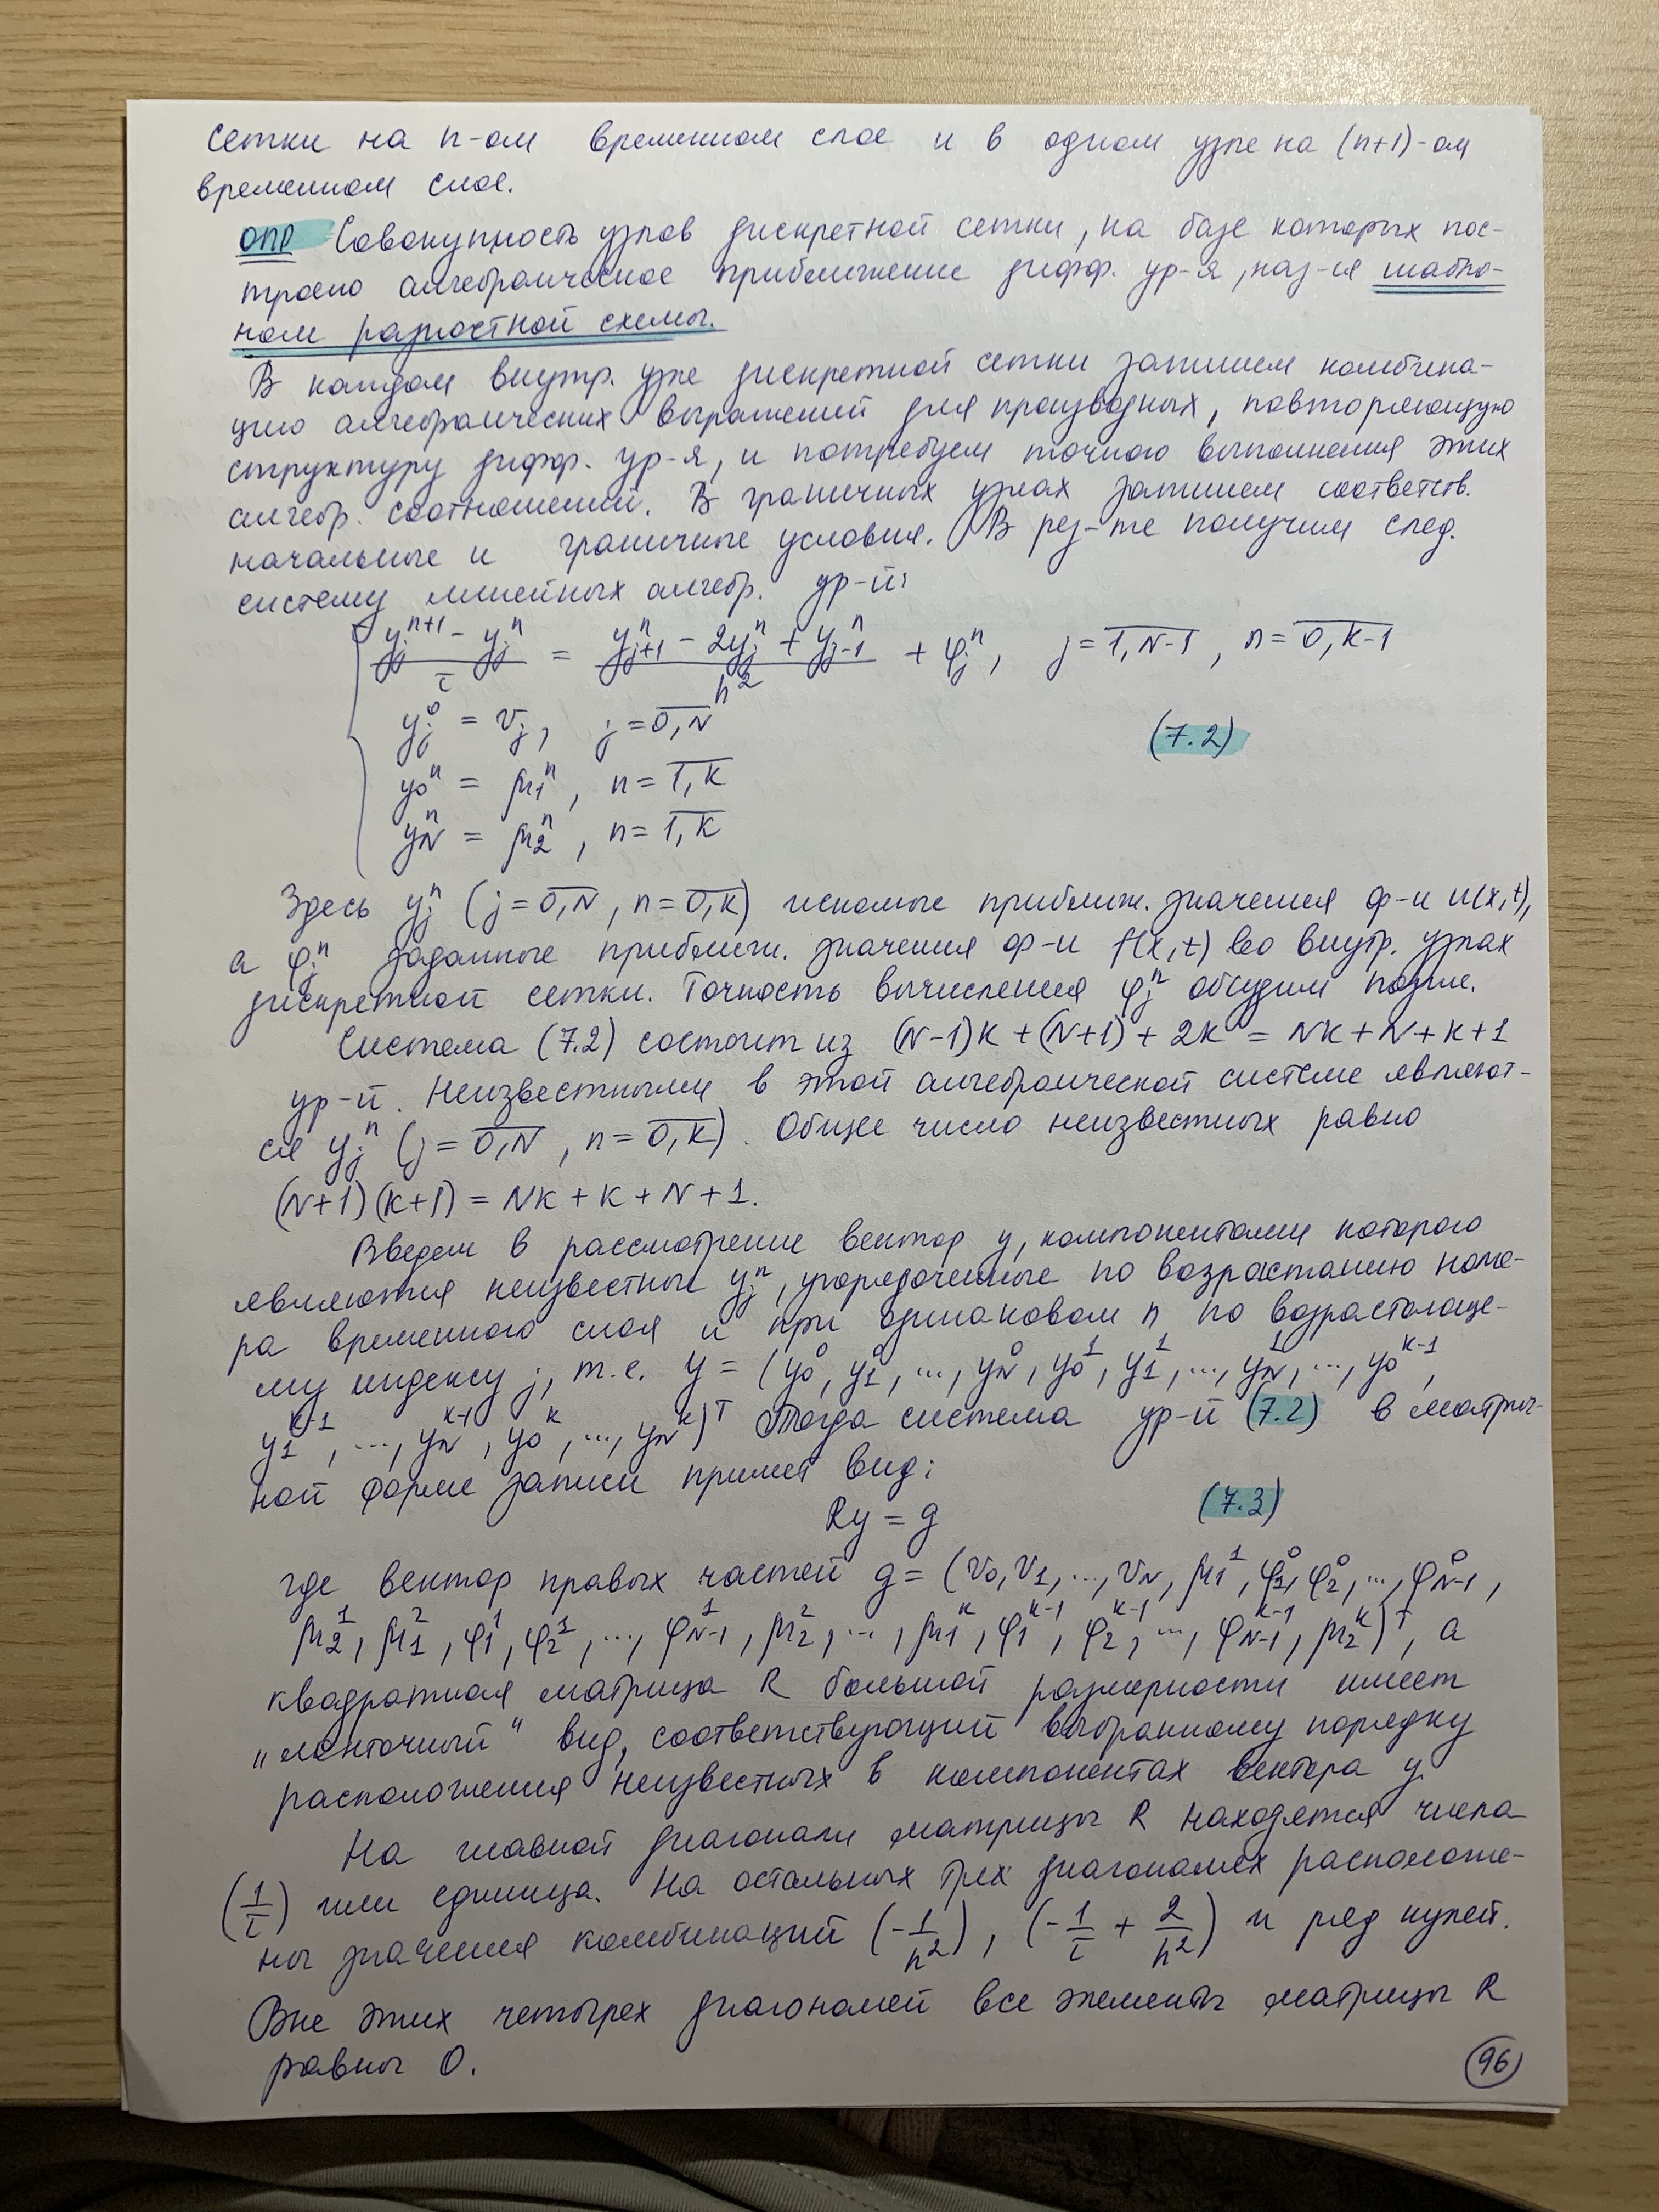 сетки на n-ом временном слое и в одном узле на (n+1)-ом
временном слое.
ОПР Совокупность узлов дискретной сетки, на базе которых пос-
троено алгебраическое приближение дифф. ур-я, наз-ся шабло-
ном разностной схемы.
В каждом внутр. узле дискретной сетки запишем комбина-
цию алгебраических выражений для производных, повторяющую
структуру дифф. ур-я, и потребуем точного выполнения этих
алгебр. соотношений. В граничных узлах запишем соответств.
начальные и граничные условия. В рез-те получим след.
систему линейных алгебр. ур-й:
(y_j^{n+1} - y_j^n)/τ = (y_{j+1}^n - 2y_j^n + y_{j-1}^n)/h^2 + φ_j^n, j = \overline{1,N-1}, n = \overline{0,K-1}
y_j^0 = v_j, j = \overline{0,N}
(7.2)
y_0^n = μ_1^n, n = \overline{1,K}
y_N^n = μ_2^n, n = \overline{1,K}
Здесь y_j^n (j = \overline{0,N}, n = \overline{0,K}) искомые приближ. значения ф-и u(x,t),
а φ_j^n заданные приближ. значения ф-и f(x,t) во внутр. узлах
дискретной сетки. Точность вычисления φ_j^n обсудим позже.
Система (7.2) состоит из (N-1)K + (N+1) + 2K = NK + N + K + 1
ур-й. Неизвестными в этой алгебраической системе являют-
ся y_j^n (j = \overline{0,N}, n = \overline{0,K}). Общее число неизвестных равно
(N+1)(K+1) = NK + K + N + 1.
Введем в рассмотрение вектор y, компонентами которого
являются неизвестные y_j^n, упорядоченные по возрастанию номе-
ра временного слоя и при одинаковом n по возрастающе-
му индексу j, т.е. y = (y_0^0, y_1^0, ..., y_N^0, y_0^1, y_1^1, ..., y_N^1, ..., y_0^{K-1},
y_1^{K-1}, ..., y_N^{K-1}, y_0^K, ..., y_N^K)^T Тогда система ур-й (7.2) в матрич-
ной форме записи примет вид:
Ry = g (7.3)
где вектор правых частей g = (v_0, v_1, ..., v_N, μ_1^1, φ_1^0, φ_2^0, ..., φ_{N-1}^0,
μ_2^1, μ_1^2, φ_1^1, φ_2^1, ..., φ_{N-1}^1, μ_2^2, ..., μ_1^K, φ_1^{K-1}, φ_2^{K-1}, ..., φ_{N-1}^{K-1}, μ_2^K)^T, а
квадратная матрица R большой размерности имеет
„ленточный“ вид, соответствующий выбранному порядку
расположения неизвестных в компонентах вектора y.
На главной диагонали матрицы R находятся числа
(1/τ) или единица. На остальных трех диагоналях расположе-
ны значения комбинаций (-1/h^2), (-1/τ + 2/h^2) и ряд нулей.
Вне этих четырех диагоналей все элементы матрицы R
равны 0.
96